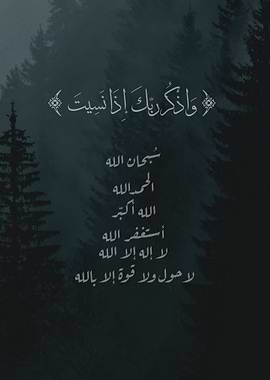 ﴿ وَاذْكُر رَّبَّكَ إِذَا نَسِيتَ ﴾
سُبحان الله
الحمدلله
الله أكبر
أستغفر الله
لا إله إلا الله
لا حول ولا قوة إلا بالله